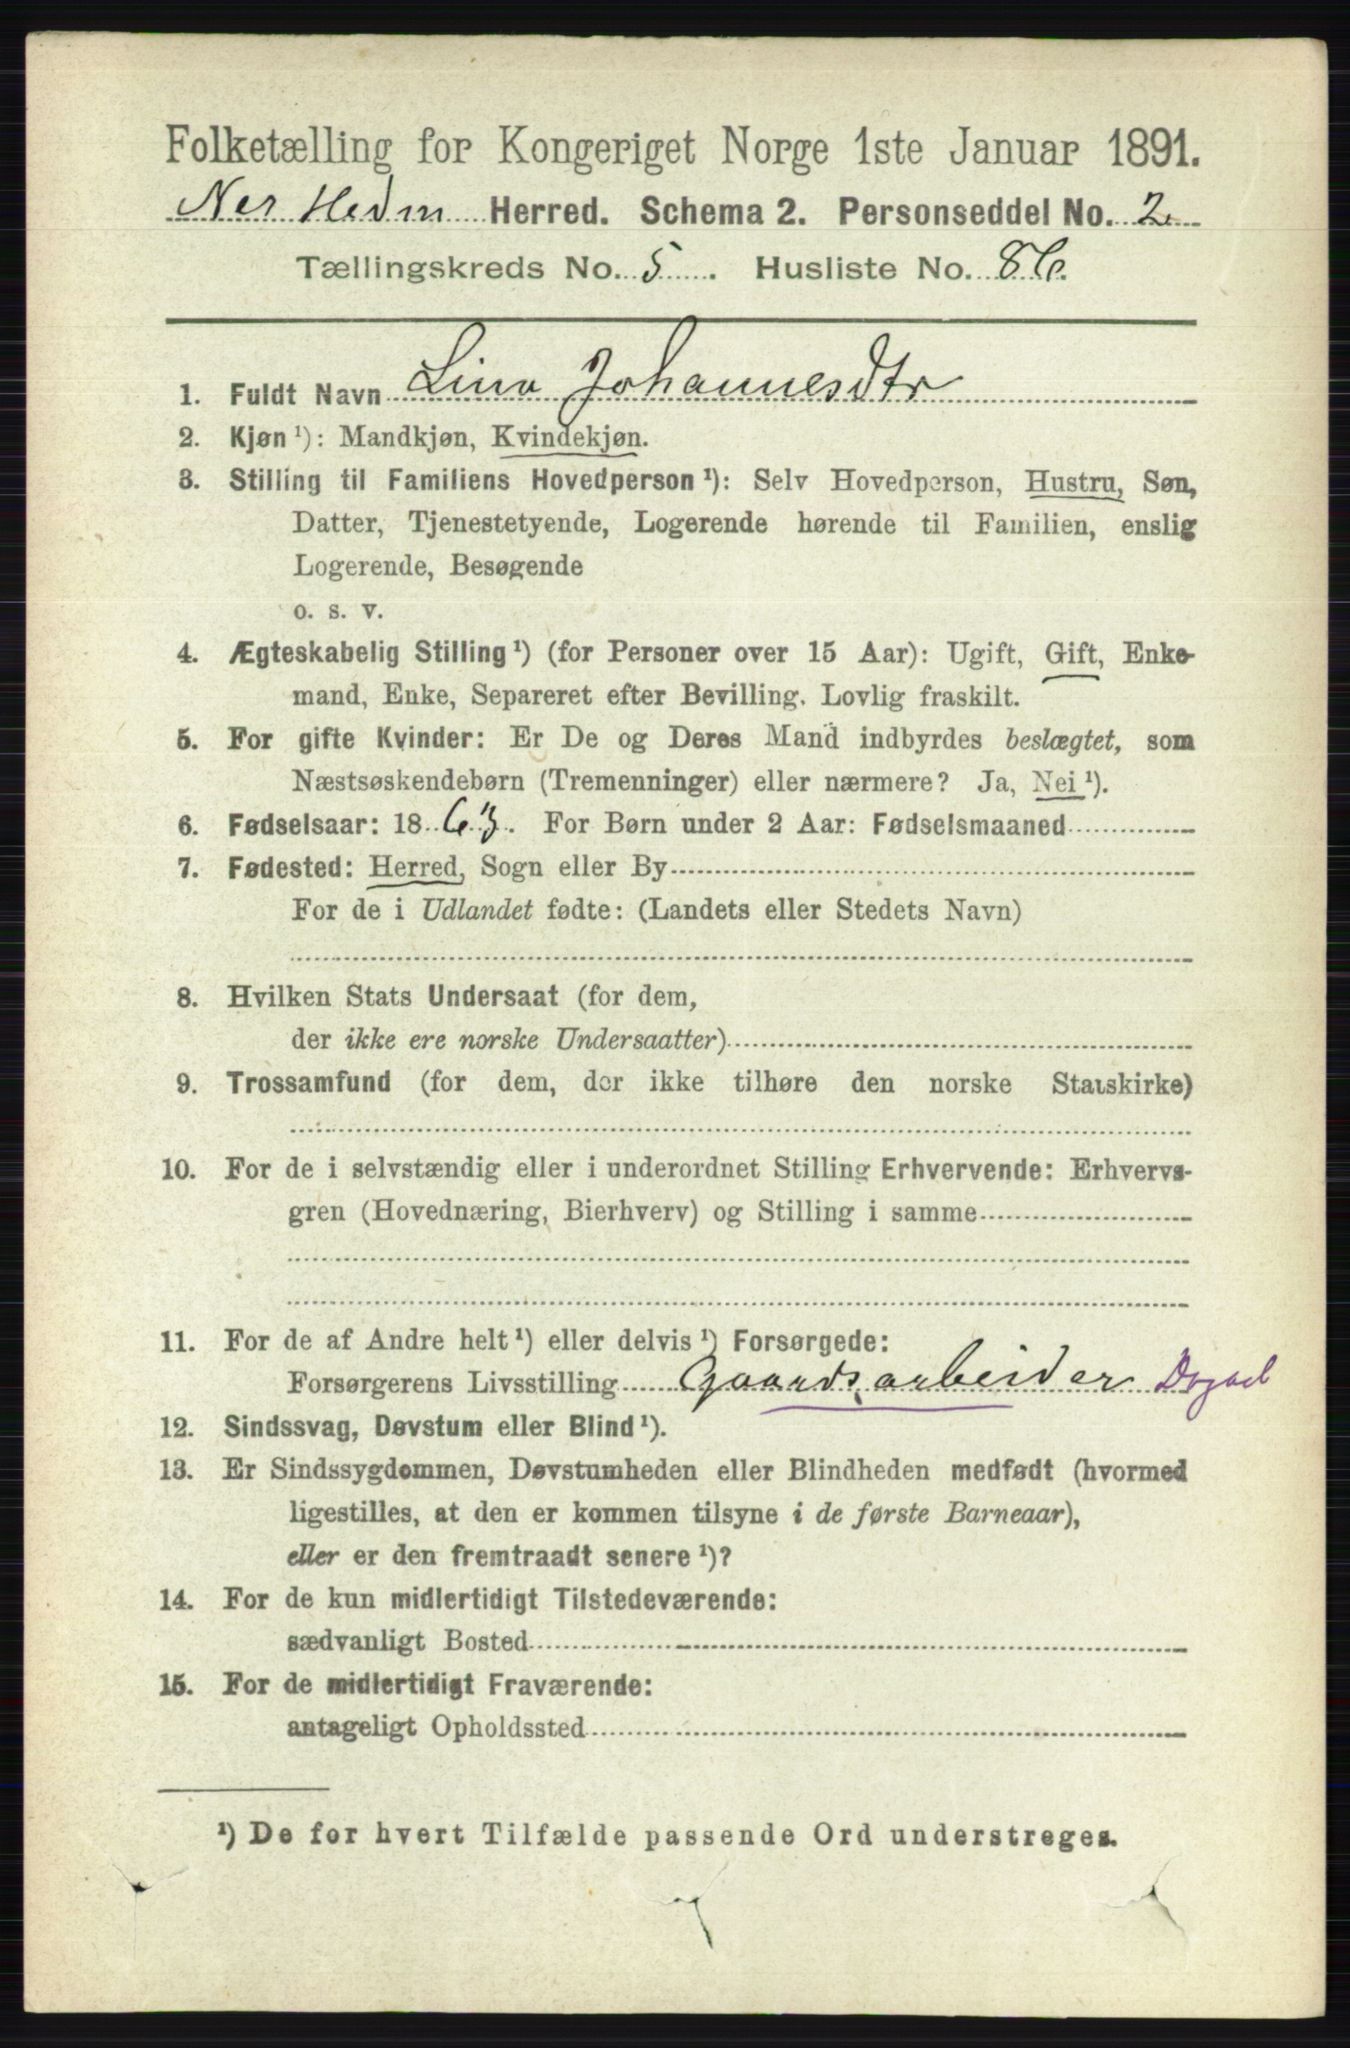 Folketælling for Kongeriget Norge 1ste Januar 1891.
Nes Hedm Herred. Schema 2. Personseddel No. 2
Tællingskreds No. 5. Husliste No. 86.
1. Fuldt Navn Lina Johannesdtr
2. Kjøn ¹): Mandkjøn, Kvindekjøn.
3. Stilling til Familiens Hovedperson ¹): Selv Hovedperson, Hustru, Søn,
Datter, Tjenestetyende, Logerende hørende til Familien, enslig
Logerende, Besøgende
o. s. v.
4. Ægteskabelig Stilling ¹) (for Personer over 15 Aar): Ugift, Gift, Enke-
mand, Enke, Separeret efter Bevilling. Lovlig fraskilt.
5. For gifte Kvinder: Er De og Deres Mand indbyrdes beslægtet, som
Næstsøskendebørn (Tremenninger) eller nærmere? Ja, Nei ¹).
6. Fødselsaar: 1863. For Børn under 2 Aar: Fødselsmaaned
7. Fødested: Herred, Sogn eller By
For de i Udlandet fødte: (Landets eller Stedets Navn)
8. Hvilken Stats Undersaat (for dem,
der ikke ere norske Undersaatter)
9. Trossamfund (for dem, der ikke tilhøre den norske Statskirke)
10. For de i selvstændig eller i underordnet Stilling Erhvervende: Erhvervs-
gren (Hovednæring, Bierhverv) og Stilling i samme
11. For de af Andre helt ¹) eller delvis ¹) Forsørgede:
Forsørgerens Livsstilling Gaardsarbeider
12. Sindssvag, Døvstum eller Blind ¹).
13. Er Sindssygdommen, Døvstumheden eller Blindheden medfødt (hvormed
ligestilles, at den er kommen tilsyne i de første Barneaar),
eller er den fremtraadt senere ¹)?
14. For de kun midlertidigt Tilstedeværende:
sædvanligt Bosted
15. For de midlertidigt Fraværende:
antageligt Opholdssted
¹) De for hvert Tilfælde passende Ord understreges.